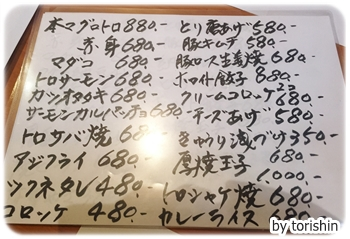 本マグロトロ 880.-
赤身 680.-
マダコ 680.-
トロサーモン 680.-
カツオタタキ 680.-
サーモンカルパッチョ 680.-
トロサバ焼 680.-
アジフライ 680.-
ツクネタレ 480.-
コロッケ 480.-
とり唐あげ 580.-
豚キムチ 580.-
豚ロス生姜焼 680.-
ホワイト餃子 680.-
クリームコロッケ 580.-
チーズあげ 580.-
きゅうり浅づけ 350.-
厚焼玉子 680.-
1,000.-
トロシャケ焼 680.-
カレーライス
by torishin